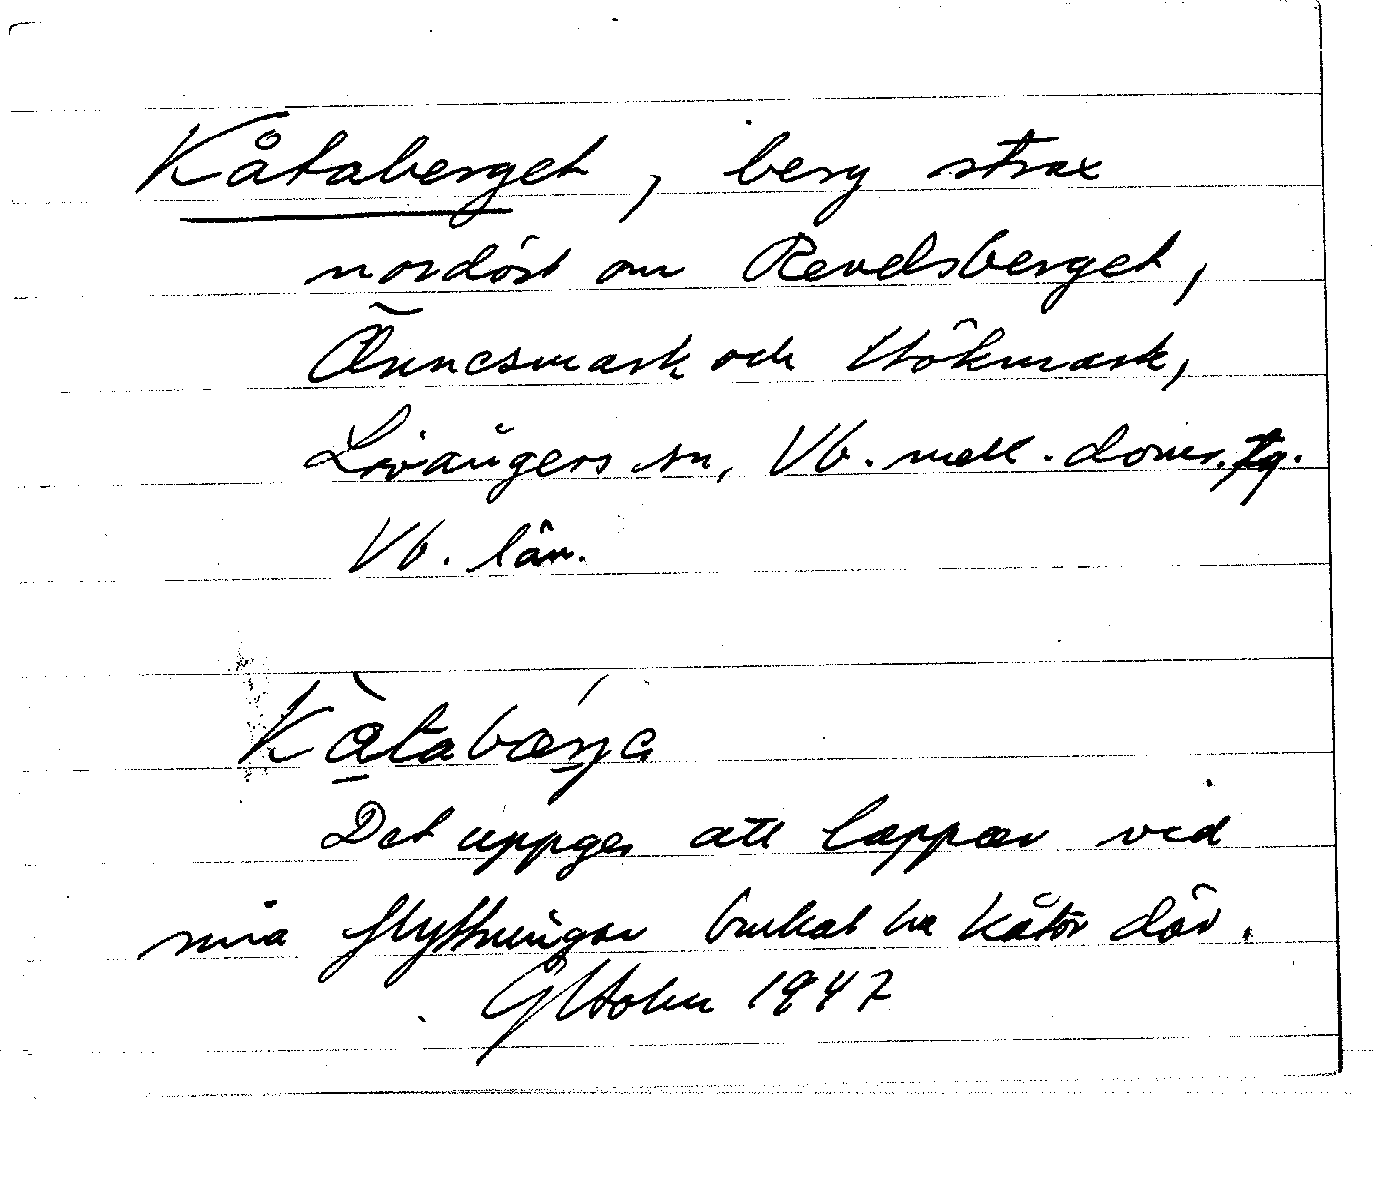 Kåtaberget, berg strax
nordöst om Revelsberget,
Önnesmark och Hökmark,
Lövångers sn, Vb. mell. doms. tg.
Vb. län.
Kåtabærje
Det uppges att lappar vid
sina flyttningar brukat ha kåtor där.
Holm 1947